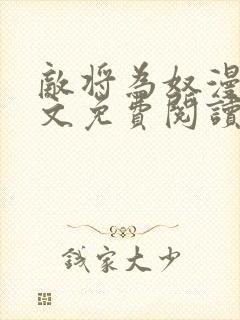 敵將為奴漫
文免費閱讀
錢家大少